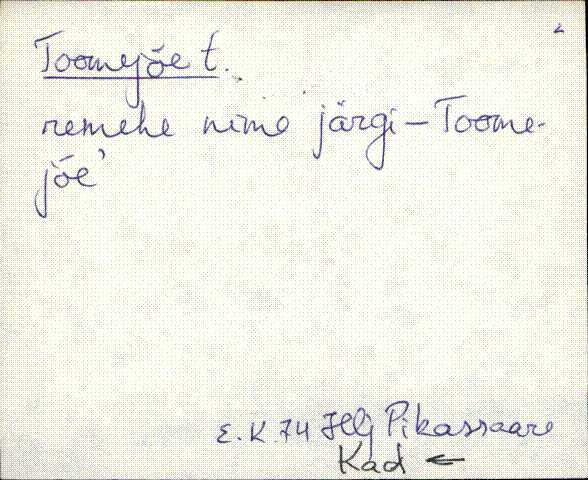 2
Toomejõe t.
remehe nime järgi – Toome-
jõe'
E.K. 74 Hlj Pikassaare
Kad ←